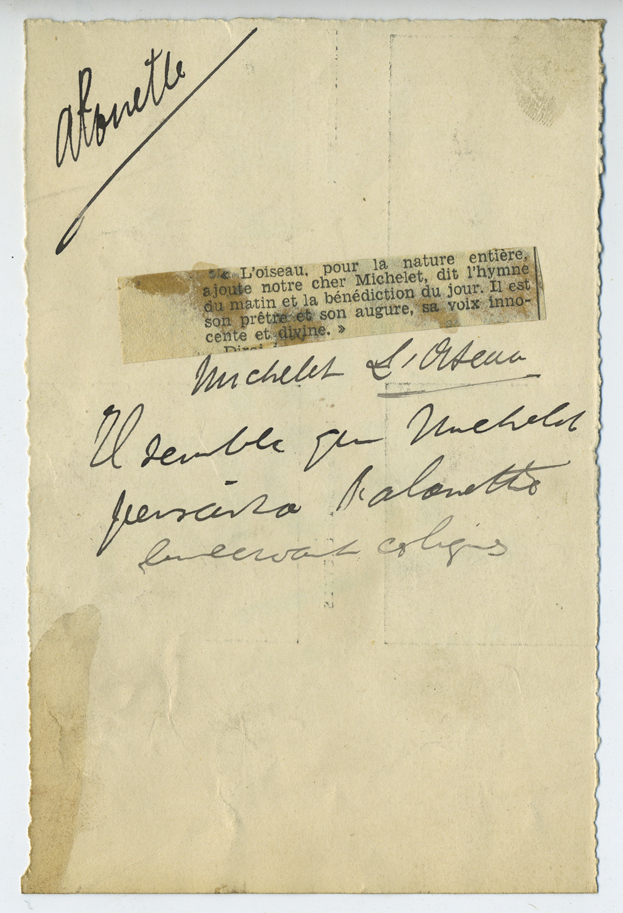 alouette
« L'oiseau, pour la nature entière,
ajoute notre cher Michelet, dit l'hymne
du matin et la bénédiction du jour. Il est
son prêtre et son augure, sa voix inno-
cente et divine. »
Michelet L'Oiseau
Il semble que Michelet
pensait à l'alouette
en écrivant ces lignes